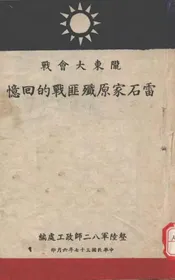 隴東大會戰
雷石家原殲匪戰的回憶
整陸軍八二師政工處編
中華民國三十七年六月印